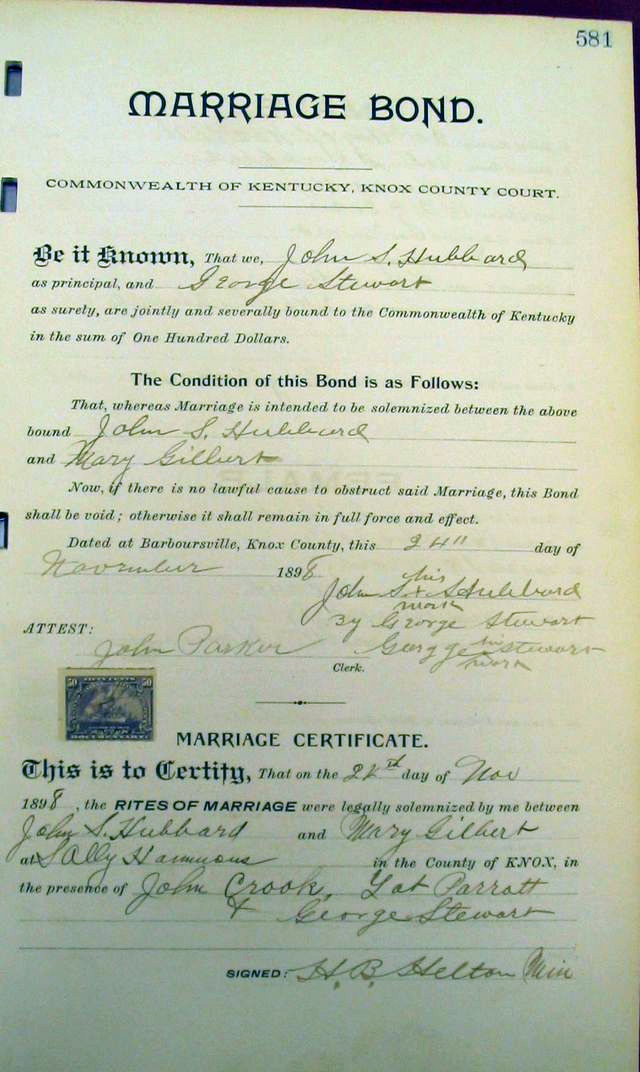 581
MARRIAGE BOND.
COMMONWEALTH OF KENTUCKY, KNOX COUNTY COURT.
Be it Known, That we, John S. Hubbard
as principal, and George Stewart
as surety, are jointly and severally bound to the Commonwealth of Kentucky
in the sum of One Hundred Dollars.
The Condition of this Bond is as Follows:
That, whereas Marriage is intended to be solemnized between the above
bound John S. Hubbard
and Mary Gilbert
Now, if there is no lawful cause to obstruct said Marriage, this Bond
shall be void; otherwise it shall remain in full force and effect.
Dated at Barboursville, Knox County, this 24" day of
November 1898
his
John S. x Hubbard
mark
By George Stewart
ATTEST:
John Parker George his Stewart
Clerk. mark
50 50
DOCUMENTARY
MARRIAGE CERTIFICATE.
This is to Certify, That on the 24th day of Nov
1898, the RITES OF MARRIAGE were legally solemnized by me between
John S. Hubbard and Mary Gilbert
at Sally Hammons in the County of KNOX, in
the presence of John Crook, Parrott
& George Stewart
SIGNED: H. B. Helton Min